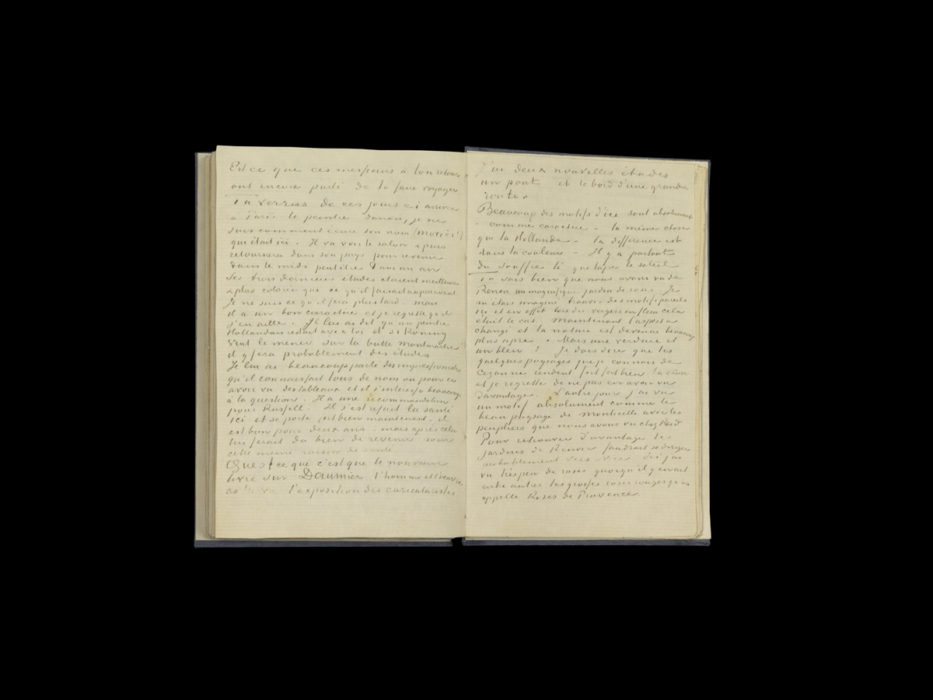 Est ce que ces messieurs à ton retour
ont encore parlé de te faire voyager
Tu verras de ces jours ci arriver
à Paris le peintre danois, je ne
sais comment écrire son nom
qui était ici. Il va voir le salon & puis
retournera dans son pays pour revenir
dans le midi peutêtre dans un an
Ses trois dernieres etudes etaient meilleures
& plus colorées que ce qu'il faisait auparavant.
Je ne sais ce qu'il fera plus tard. mais
il a un bon caractère et je regrette qu'il
s'en aille. Je lui ai dit qu'un peintre
Hollandais restait avec toi et si Koning
veut le mener sur la butte Montmartre
il y fera probablement des etudes
Je lui ai beaucoup parlé des impressionnistes
qu'il connaissait tous de nom ou pour en
avoir vu des tableaux et il s'interesse beaucoup
à la question. Il a une recommandation
pour Russell. Il s'est refait la santé
ici et se porte fort bien maintenant. il
est bien pour deux ans. mais après cela
lui ferait du bien de revenir pour
cette meme raison de santé.
Qu'est ce que c'est que le nouveau
livre sur Daumier l'homme et l'œuvre
as tu vu l'exposition des caricaturistes
J'ai deux nouvelles études
un pont et le bord d'une grande
route.
Beaucoup des motifs d'ici sont absolument
comme caractère. la même chose
que la Hollande. la différence est
dans la couleur. Il y a partout
du souffre là que tape le soleil
Tu sais bien que nous avons vu de
Renoir un magnifique jardin de roses. Je
m'étais imaginé trouver des motifs pareils
ici et en effet lors des vergers en fleur cela
était le cas. Maintenant l'aspect a
changé et la nature est devenue beaucoup
plus âpre. Mais une verdure et
un bleu! Je dois dire que les
quelques paysages que je connais de
Cezanne rendent fort fort bien la chose
et je regrette de ne pas en avoir vu
davantage. L'autre jour j'ai vu
un motif absolument comme le
beau paysage de Monticelli avec les
peupliers que nous avons vu chez Reid
Pour retrouver d'avantage les
jardins de Renoir faudrait se diriger
probablement vers Nice. Ici j'ai
vu très peu de roses quoiqu'il y en ait
entre autres les grosses roses rouges qu'on
appelle Roses de Provence